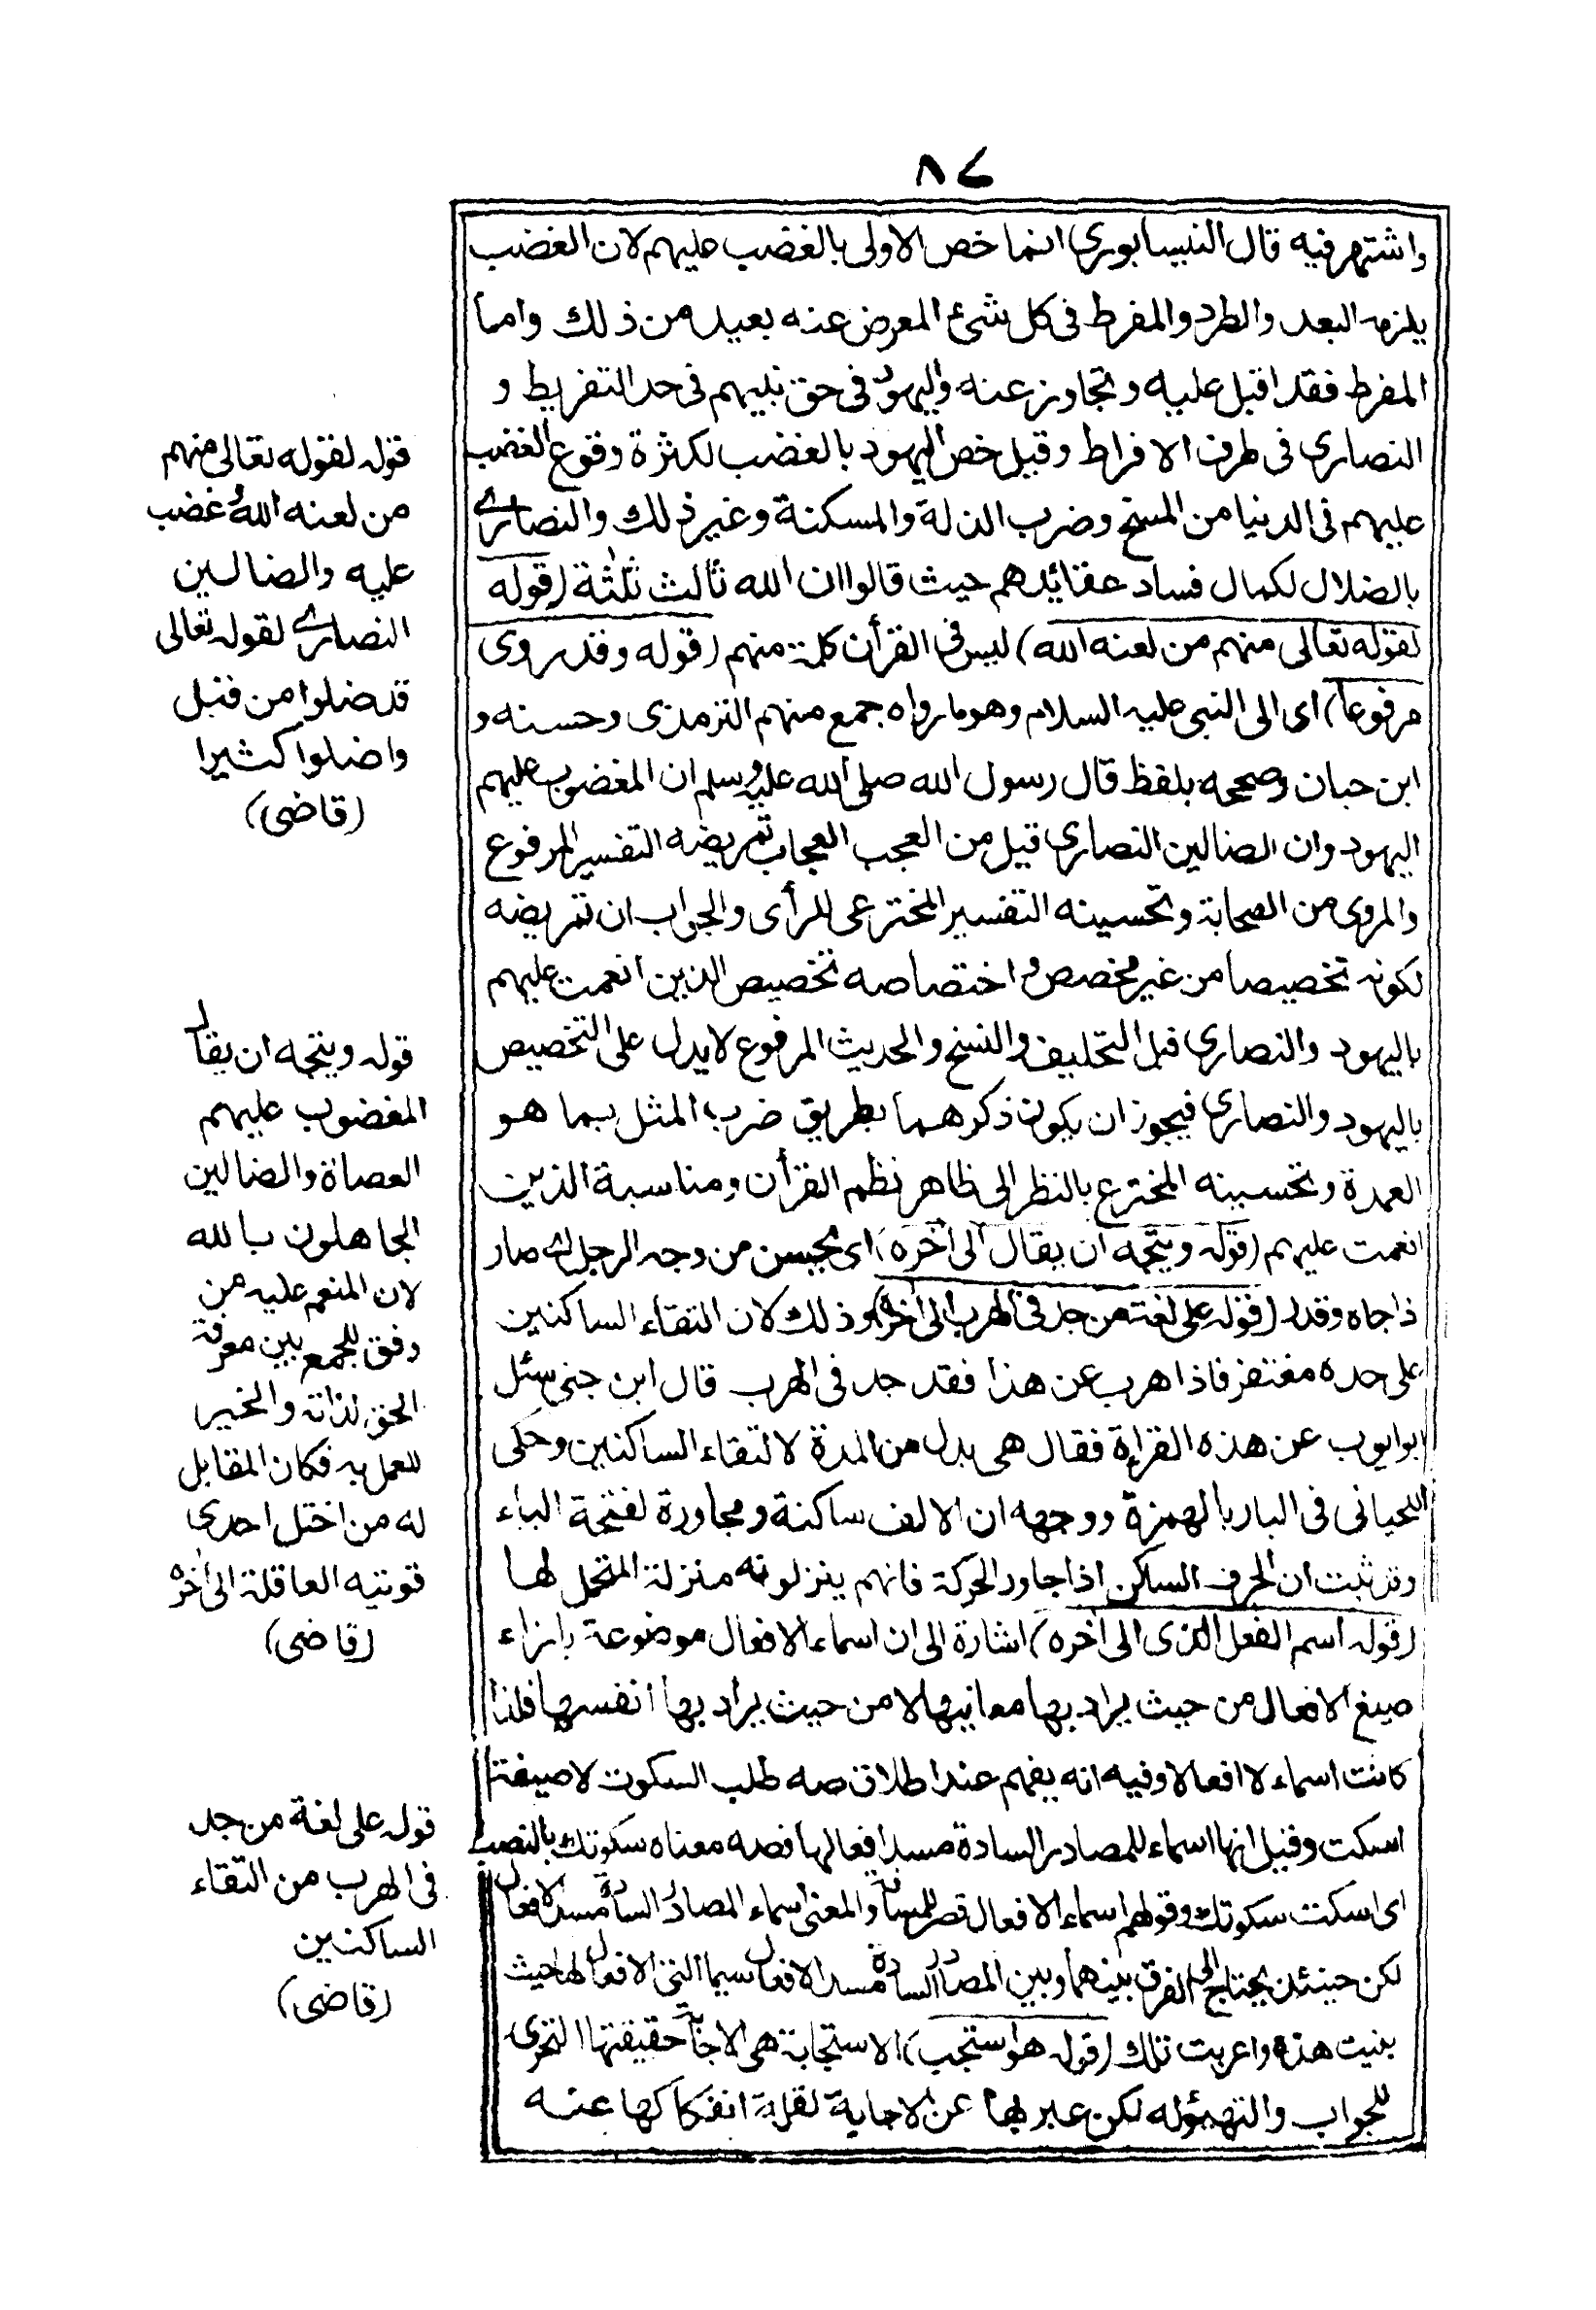 ٨٧
واشتهر فيه قال النيسابوري انما خص الاولى بالغضب عليهم لان الغضب
يلزمه البعد والطرد والمفرط في كل شئ المعرض عنه بعيد من ذلك واما
المفرط فقد اقبل عليه وتجاوز عنه واليهود في حق نبيهم في حد التفريط و
النصارى في طرف الافراط وقيل خص اليهود بالغضب لكثرة وقوع الغضب
عليهم في الدنيا من المسخ وضرب الذلة والمسكنة وغير ذلك والنصارى
بالضلال لكمال فساد عقائدهم حيث قالوا ان الله ثالث ثلثة (قوله
لقوله تعالى منهم من لعنه الله) ليس في القرأن كلمة منهم (قوله وقد روى
مرفوعا) اى الى النبي عليه السلام وهو ما رواه جمع منهم الترمذى وحسنه و
ابن حبان وصححه بلفظ قال رسول الله صلى الله عليه وسلم ان المغضوب عليهم
اليهود وان الضالين النصارى قيل من العجب العجاب تمريضه التفسير المرفوع
والمروى من الصحابة وتحسينه التفسير المخترعى للرأى والجواب ان تمريضه
لكونه تخصيصا من غير مخصص و اختصاصه تخصيص الذين انعمت عليهم
باليهود والنصارى قبل التحليف والنسخ والحديث المرفوع لا يدل على التخصيص
باليهود والنصارى فيجوز ان يكون ذكرهما بطريق ضرب المثل بما هو
العمدة وتحسينه المخترع بالنظر الى ظاهر نظم القرأن ومناسبة الذين
انعمت عليهم (قوله ويتجه ان يقال الى أخره) اى يحسن من وجه الرجل اى صار
ذا جاه وقدر (قوله على لغة من جد في الهرب الى أخره) وذلك لان التقاء الساكنين
على حده مغتفر فاذا هرب عن هذا فقد جد في الهرب قال ابن جنى سئل
ابو ايوب عن هذه القراءة فقال هى بدل من المدة لالتقاء الساكنين وحكى
اللحيانى فى الباز بالهمزة ووجهه ان الالف ساكنة ومجاورة لفتحة الباء
وقد ثبت ان الحرف الساكن اذا جاور الحركة فانهم ينزلونه منزلة المتحمل لها
(قوله اسم الفعل الذى الى أخره) اشارة الى ان اسماء الافعال موضوعة بازاء
صيغ الافعال من حيث يراد بها معانيها لا من حيث يراد بها انفسها فلذا
كانت اسماء لا افعالا وفيه انه يفهم عند اطلاق صه طلب السكوت لا صيغة
اسكت وقيل انها اسماء للمصادر السادة مسد افعالها فصه معناه سكوتك بالنصب
اى اسكت سكوتك وقولهم اسماء الافعال قصر للمسافة والمعنى اسماء المصادر السادة مسد الافعال
لكن حينئذ يحتاج الى الفرق بينهما وبين المصادر السادة مسد الافعال سيما التى لا فعل لها حيث
بنيت هذه واعربت تلك (قوله هو استجب) الاستجابة هى الاجابة حقيقتها التحرى
للجواب والتهيؤ له لكن عبر بها عن الاجابة لقلة انفكاكها عنه
قوله لقوله تعالى منهم
من لعنه الله وغضب
عليه والضالين
النصارى لقوله تعالى
قد ضلوا من قبل
واضلوا كثيرا
(قاضى)
قوله ويتجه ان يقال
المغضوب عليهم
العصاة والضالين
الجاهلون بالله
لان المنعم عليه من
وفق للجمع بين معرفة
الحق لذاته والخير
للعمل به فكان المقابل
له من اختل احدى
قوتيه العاقلة الى أخره
(قاضى)
قوله على لغة من جد
فى الهرب من التقاء
الساكنين
(قاضى)